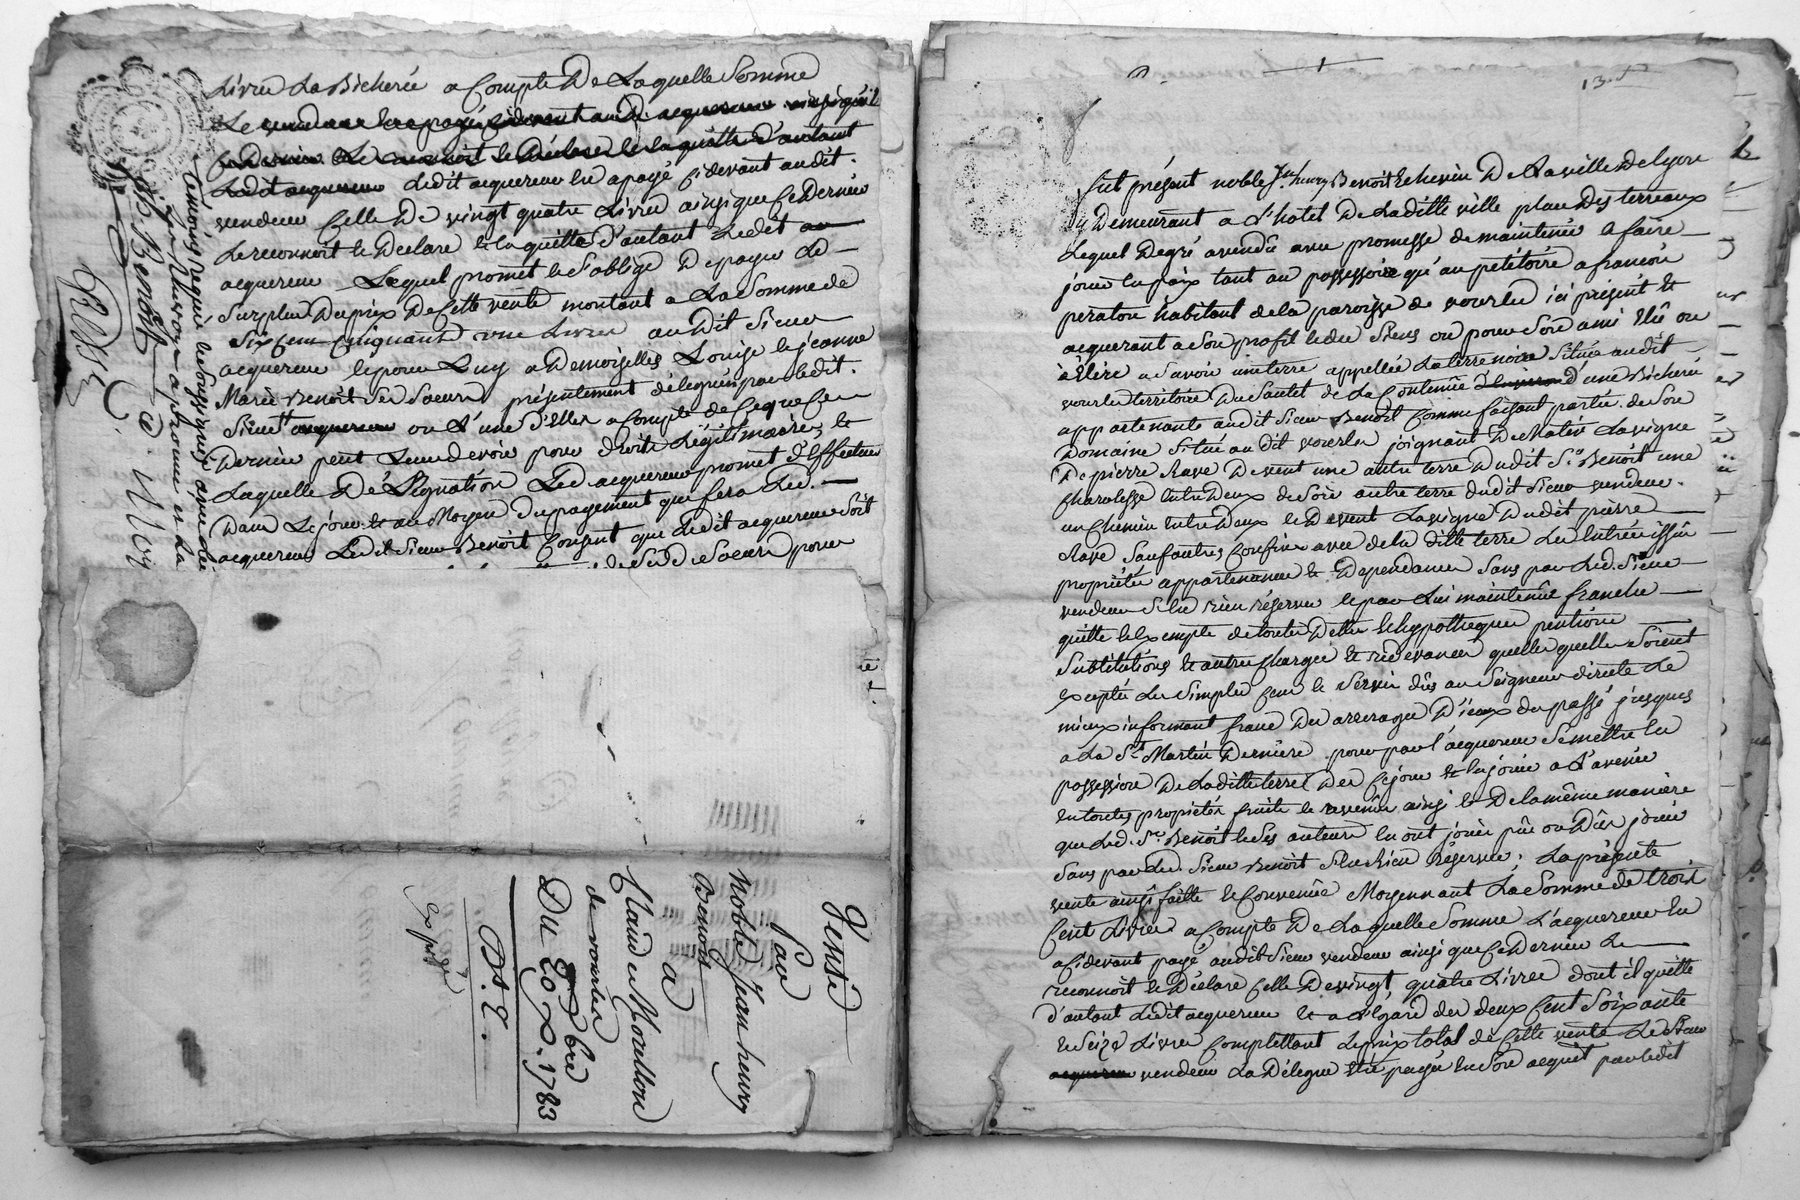 Livres La Bicherée a Compte De Laquelle Somme
Ledit acquereur ledit acquereur en a payé cidevant audit
vendeur Celle De vingt quatre Livres ainsi que ce Dernier
Le reconnoit le Declare et en quitte d'autant Ledit
acquereur Lequel promet et s'oblige De payer Le
Surplus Du prix De Cette vente montant a La Somme de
Six Cent Cinquante une Livres audit Sieur
acquereur et pour Luy a Demoiselles Louise et jeanne
Marie Benoit Ses Soeurs présentement déleguées par ledit
Sieur acquereur ou a L'une d'Elles a Compte de Ce que Ce
Dernier peut Leur devoir pour droits Légitimaires, et
Laquelle Délégation Led acquereur promet d'Effectuer
Dans Le jour et au Moyen Du payement que fera Led.
acquereur Ledit Sieur Benoit Consent que Ledit acquereur Soit
de Sesd. Soeurs pour
témoins requis et soussignés avec led
Sr Benoit
Vente
Par
Noble Jean henry
Benoit
a
Claude Morellon
de vourles
Du 20 Xbre 1783
B. C.
Exp.
13
fut présent noble Jn henry Benoit Echevin De La ville De Lyon
y Demeurant a L'hotel De Ladite ville place Des terreaux
Lequel De gré a vendû avec promesse de maintenir et faire
jouir en paix tant au possessoire qu'au petitoire a francois
peraton habitant de la paroisse de vourles ici présent et
acquerant a Son profit et des Siens ou pour Son ami Elû ou
à Elire a Savoir une terre appellée La terre noire Située audit
vourles territoire Du Sautet de La Contenue d'environ d'une Bicherée
appartenante audit Sieur Benoit Comme faisant partie de Son
Domaine Situé audit vourles joignant De Matin La vigne
De pierre Rave De vent une autre terre Dudit Sr Benoit une
Charolesse Entre Deux de Soir autre terre dudit Sieur vendeur
un Chemin Entre Deux et De vent La vigne Dudit pierre
Rave Sauf autres Confins avec de la ditte terre Les Entrées issûes
propriétés appartenances et Dependances Sans par Led. Sieur
vendeur S'en rien réserver et par Lui maintenue franche
quitte et Exempte de toutes Dettes et hypotheques pentions
Substitutions et autres Charges et redevances quelles quelles Soient
Exceptés Les Simples Cens et Servis dûs au Seigneur directe Le
mieux informant franc Des arrerages D'iceux du passé jusques
a La St Martin Derniere pour par l'acquereur Se mettre En
possession De La ditte terre Des Ce jour et En jouir a L'avenir
En toutes propriétés fruits et revenûs ainsi et De la même manière
que Led. Sr Benoit et Ses auteurs En ont joüi pû ou Dû En joüir
Sans par Led. Sieur Benoit S'en Rien Réserver; La présente
vente ainsi faitte et Convenüe Moyennant La Somme de trois
Cent Livres a Compte De Laquelle Somme L'acquereur En
a cidevant payé audit Sieur vendeur ainsi que ce Dernier Le
reconnoit et Déclare Celle De vingt quatre Livres dont il quitte
d'autant Ledit acquereur Et a L'égard des deux Cent Soixante
et Seize Livres Complettant Le prix total de Cette vente Led. Sieur
vendeur La Délegue Etre payée En Son acquit par Ledit